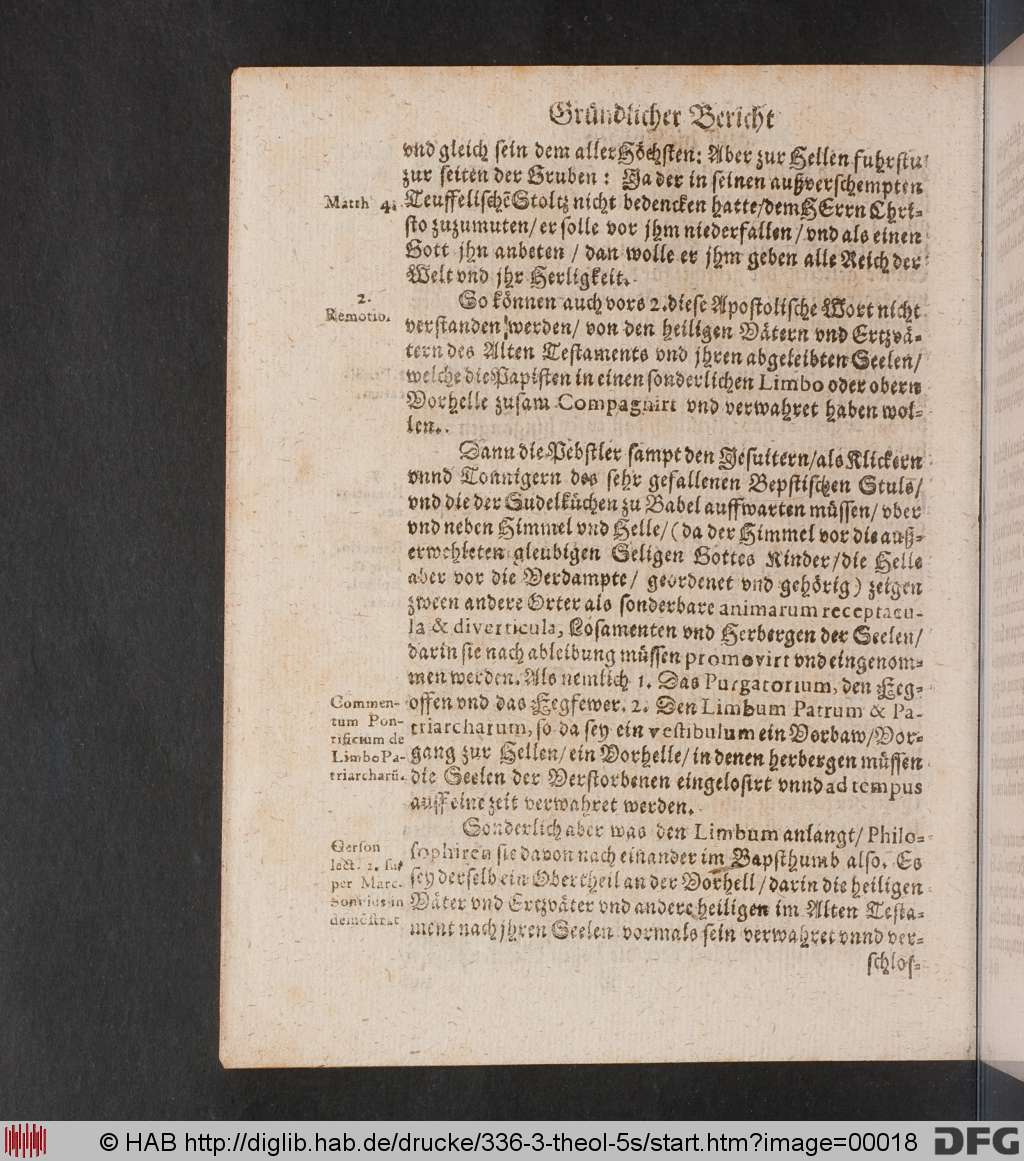 Gründlicher Bericht
vnd gleich sein dem aller Höchsten: Aber zur Hellen fuhrstu
zur seiten der Gruben: Ja der in seinen außverschempten
Matth 4.
Teuffelischẽ Stoltz nicht bedencken hatte/ dem HErrn Chri-
sto zuzumuten/ er solle vor jhm niederfallen/ vnd als einen
Gott jhn anbeten/ dan wolle er jhm geben alle Reich der
Welt vnd jhr Herligkeit.
2.
Remotio.
So können auch vors 2. diese Apostolische Wort nicht
verstanden werden/ von den heiligen Vätern vnd Ertzvä-
tern des Alten Testaments vnd jhren abgeleibten Seelen/
welche die Papisten in einen sonderlichen Limbo oder obern
Vorhelle zusam Compagnirt vnd verwahret haben wol-
len.
Dann die Pebstler sampt den Jesuitern/ als Klickern
vnnd Tonnigern des sehr gefallenen Bepstischen Stuls/
vnd die der Sudelküchen zu Babel auffwarten müssen/ vber
vnd neben Himmel vnd Helle/ (da der Himmel vor die auß-
erwehleten gleubigen Seligen Gottes Kinder/ die Helle
aber vor die Verdampte/ geordenet vnd gehörig) zeigen
zween andere Orter als sonderbare animarum receptacu-
la & diverticula, Losamenten vnd Herbergen der Seelen/
darin sie nach ableibung müssen promovirt vnd eingenom-
men werden. Als nemlich 1. Das Purgatorium, den Feg-
Commen-
tum Pon-
tificium de
Limbo Pa-
triarcharũ.
offen vnd das Fegfewer. 2. Den Limbum Patrum & Pa-
triarcharum, so da sey ein vestibulum ein Vorbaw/ Vor-
gang zur Hellen/ ein Vorhelle/ in denen herbergen müssen
die Seelen der Verstorbenen eingelosirt vnnd ad tempus
auff eine zeit verwahret werden.
Sonderlich aber was den Limbum anlangt/ Philo-
Gerson
lect. 2. su-
per Marc.
Sonnius in
demõstrat
sophiren sie davon nach einander im Bapsthumb also. Es
sey derselb ein Obertheil an der Vorhell/ darin die heiligen
Väter vnd Ertzväter vnd andere heiligen im Alten Testa-
ment nach jhren Seelen vormals sein verwahret vnnd ver-
schlos-
© HAB http://diglib.hab.de/drucke/336-3-theol-5s/start.htm?image=00018
DFG